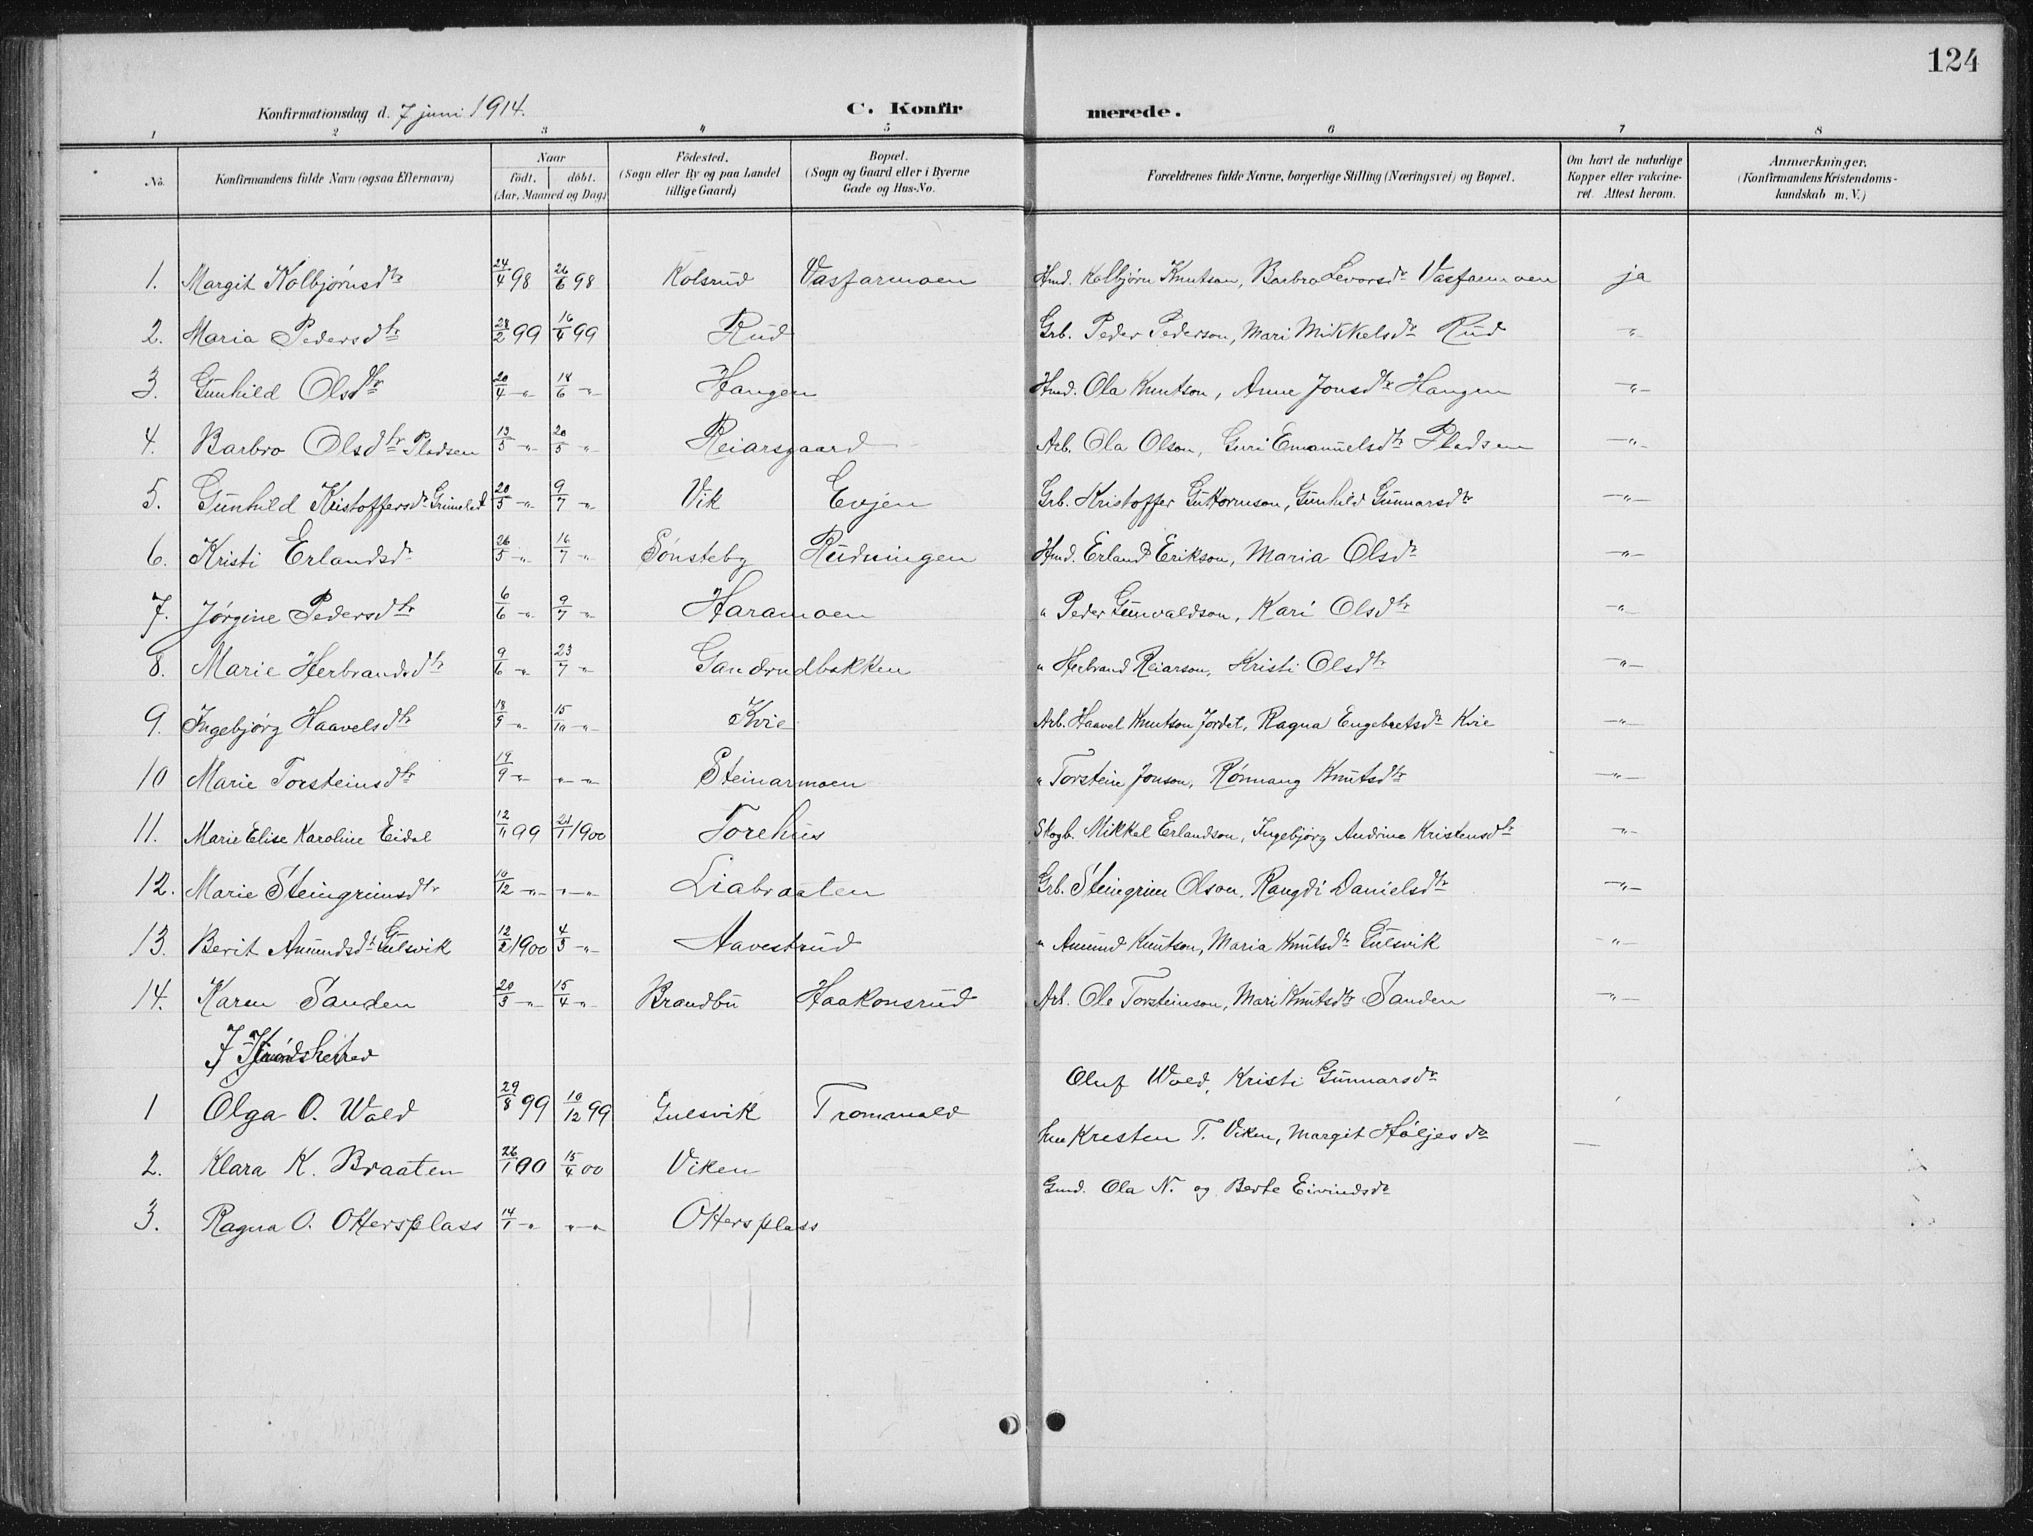 124
Konfirmationsdag d. 7 juni 1914. C. Konfirmerede.
1 2 3 4 5 6 7 8
No. Konfirmandens fulde Navn (ogsaa Efternavn) Naar födt. döbt. (Aar, Maaned og Dag) Födested. (Sogn eller By og paa Landet tillige Gaard) Bopæl. (Sogn og Gaard eller i Byerne Gade og Hus-No. Forældrenes fulde Navne, borgerlige Stilling (Næringsvei) og Bopæl. Om havt de naturlige Kopper eller vakcineret. Attest herom. Anmærkninger. (Konfirmandens Kristendomskundskab m. V.)
1. Margit Kolbjørnsdtr 24/4 98 26/6 98 Kolsrud Vasfarmoen Hmd. Kolbjørn Knutson, Barbro Levorsdtr Vasfarmoen ja
2. Maria Pedersdtr 28/2 99 16/4 99 Rud Grb. Peder Pederson, Mari Mikkelsdtr Rud -"-
3. Gunhild Olsdtr 20/4 -"- 18/6 -"- Haugen Hmd. Ola Knutson, Anne Jonsdtr Haugen -"-
4. Barbro Olsdtr Pladsen 13/5 -"- 20/5 -"- Reiarsgaard Arb. Ola Olson, Guri Emanuelsdtr Pladsen -"-
5. Gunhild Kristoffersdtr 20/5 -"- 9/7 -"- Vik Evjen Grb. Kristoffer Guttormson, Gunhild Gunnarsdtr -"-
6. Kristi Erlandsdtr 26/5 -"- 16/7 -"- Sønsteby Rudningen Hmd. Erland Erikson, Maria Olsdtr -"-
7. Jørgine Pedersdtr 6/6 -"- 9/7 -"- Haramoen " Peder Gunvaldson, Kari Olsdtr -"-
8. Marie Herbrandsdtr 9/6 -"- 23/7 -"- Gandrudbakken " Herbrand Reiarson, Kristi Olsdtr -"-
9. Ingebjørg Haavelsdtr 18/9 -"- 15/10 -"- Kvie Arb. Haavel Knutson Jordet, Ragna Engebretsdtr Kvie -"-
10 Marie Torsteinsdtr 19/9 -"- -"- -"- Steinarmoen " Torstein Jonson, Rønnaug Knutsdtr -"-
11. Marie Elise Karoline Eidal 12/11 99 21/1 1900 Torehus Skogb. Mikkel Erlandson, Ingebjørg Andrine Kristensdtr -"-
12. Marie Steingrimsdtr 10/12 -"- -"- -"- Liabraaten Grb. Steingrim Olson, Rangdi Danielsdtr -"-
13. Berit Amundsdtr Gulsvik 12/2 1900 4/3 -"- Aavestrud " Amund Knutson, Maria Knutsdtr Gulsvik -"-
14. Karen Sanden 20/3 -"- 15/4 -"- Brandbu Haakonsrud Arb. Ole Torsteinson, Mari Knutsdtr Sanden -"-
I Krødsherred
1 Olga O. Wold 29/8 99 10/12 99 Gulsvik Trommald Oluf Wold, Kristi Gunnarsdtr
2. Klara K. Braaten 26/1 90 15/4 00 Viken Kristen T. Viken, Margit Høljesdtr
3. Ragna O. Ottersplass 14/1 -"- -"- -"- Ottersplass Gmd. Ola N. og Berte Eivindsdtr